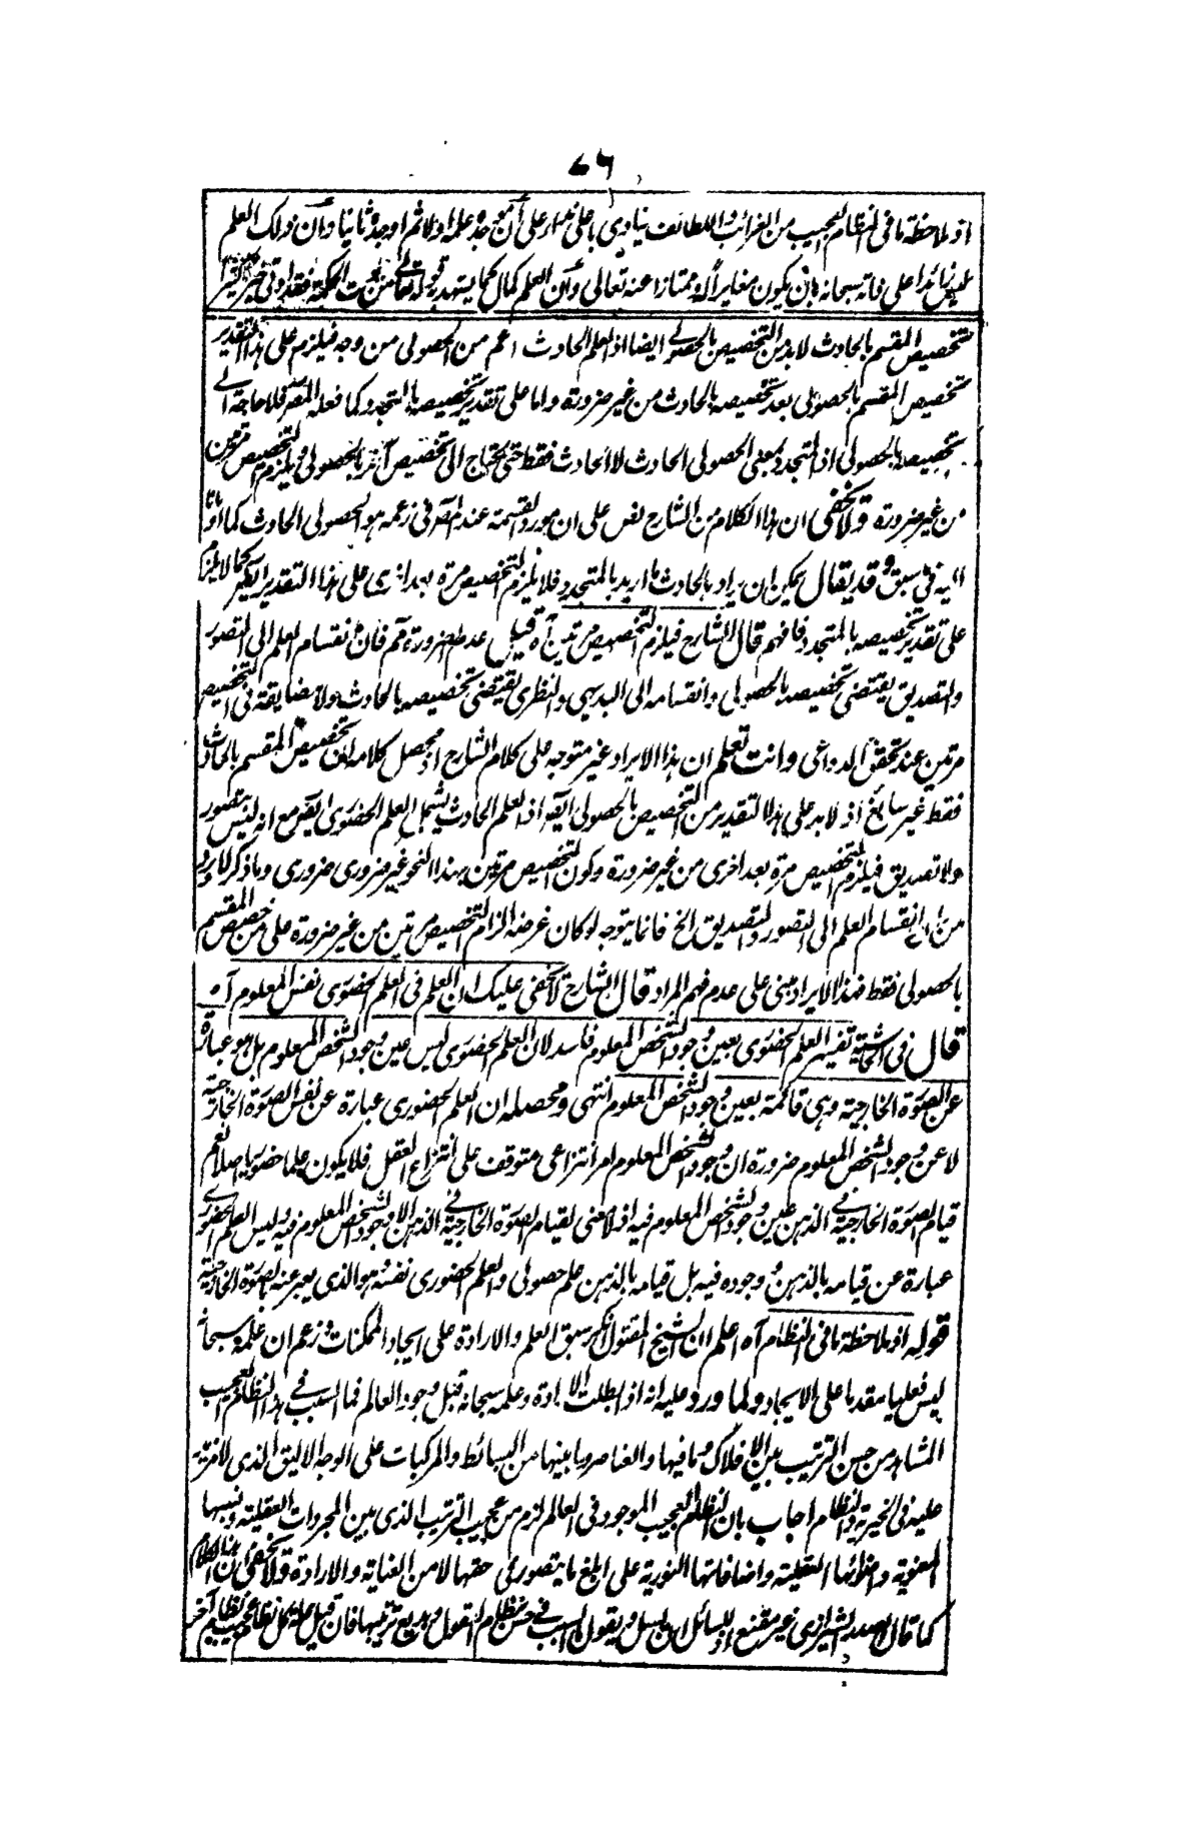 ٧٦
اذ ملاحظة ما فى النظام العجيب من الغرائب واللطائف ينادى باعلى نداء على أن موجده علمه اولا ثم اوجده ثانيا وأن ذلك العلم
ليس زائدا على ذاته سبحانه بان يكون مغايرا له وممتازا عنه تعالى وأن العلم كمال كما يشهد به قوله تعالى من يؤت الحكمة فقد اوتى خيرا كثيرا
تخصيص المقسم بالحادث لابد من التخصيص بالحصولى ايضا اذ العلم الحادث اعم من الحصولى من وجه فيلزم على هذا التقدير
تخصيص المقسم بالحصولى بعد تخصيصه بالحادث من غير ضرورة واما على تقدير تخصيصه بالمتجدد كما فعله المصر فلا حاجة الى
تخصيصه بالحصولى اذ المتجدد بمعنى الحصولى الحادث لا الحادث فقط حتى يحتاج الى تخصيص آخر بالحصولى ويلزم التخصيص مرتين
من غير ضرورة ولا يخفى ان هذا الكلام من الشارح نص على ان مورد القسمة عند المصر فى زعمه هو الحصولى الحادث كما اومأنا
اليه فى سبق وقد يقال يمكن ان يراد بالحادث ما اريد بالمتجدد فلا يلزم التخصيص مرة بعد اخرى على هذا التقدير ايضا كما لا يلزم
على تقدير تخصيصه بالمتجدد فافهم قال الشارح فيلزم التخصيص مرتين آه قيل عدم الضرورة مم فان انقسام العلم الى التصور
والتصديق يقتضى تخصيصه بالحصولى وانقسامه الى البديهى والنظرى يقتضى تخصيصه بالحادث ولا مضايقة فى التخصيص
مرتين عند تحقق الدواعى وانت تعلم ان هذا الايراد غير متوجه على كلام الشارح اذ محصل كلامه ان تخصيص المقسم بالحادث
فقط غير سائغ اذ لابد على هذا التقدير من التخصيص بالحصولى ايضا اذ العلم الحادث يشمل العلم الحضورى ايضا مع انه ليس بتصور
ولا تصديق فيلزم التخصيص مرة بعد اخرى من غير ضرورة وكون التخصيص مرتين بهذا النحو غير ضرورى ضرورى وما ذكر لا يرد
من ان انقسام العلم الى التصور والتصديق الخ فانما يتوجه لو كان غرضه الزام التخصيص مرتين من غير ضرورة على من خصص المقسم
بالحصولى فقط فهذا الايراد مبنى على عدم فهم المراد قال الشارح لا يخفى عليك ان العلم فى العلم الحضورى نفس المعلوم آه
قال فى الحاشية تفسير العلم الحضورى بعين وجود الشخص المعلوم فاسد لان العلم الحضورى ليس عين وجود الشخص المعلوم بل هو عبارة
عن الصورة الخارجية وهى قائمة بعين وجود الشخص المعلوم انتهى ومحصله ان العلم الحضورى عبارة عن نفس الصورة الخارجية
لا عن وجود الشخص المعلوم ضرورة ان وجود الشخص المعلوم امر انتزاعى متوقف على انتزاع العقل فلا يكون علما حضوريا اصلا نعم
قيام الصورة الخارجية فى الذهن عين وجود الشخص المعلوم فيه اذ لا معنى لقيام الصورة الخارجية فى الذهن الا وجود الشخص المعلوم فيه وليس العلم الحضورى
عبارة عن قيامه بالذهن ووجوده فيه بل قيامه بالذهن علم حصولى والعلم الحضورى نفسه هو الذى يعبر عنه بالصورة الخارجية
قوله اذ ملاحظة ما فى النظام آه اعلم ان الشيخ المقتول انكر سبق العلم والارادة على ايجاد الممكنات وزعم ان علمه سبحانه
ليس فعليا مقدما على الايجاد ولما ورد عليه انه اذا بطلت الارادة وعلمه سبحانه قبل وجود العالم فما السبب فى هذا النظام العجيب
المشاهد من حسن الترتيب بين الافلاك وما فيها والعناصر وما بينها من البسائط والمركبات على الوجه الاليق الذى لا مزيد
عليه فى الخيرية والنظام اجاب بان النظام العجيب الموجود فى العالم لزم من عجيب الترتيب الذى بين المجردات العقلية ونسبها
المعنوية واضوائها العقلية واضافاتها النورية على ابلغ ما يتصور فى حقها لا من العناية والارادة ولا يخفى ان هذا الكلام
كما قال الصدر الشيرازى غير مقنع اذ للسائل ان يسأل ويقول ما السبب فى حسن نظام العقول وبديع ترتيبها فان قيل علة كل نظام عجيب نظام آخر